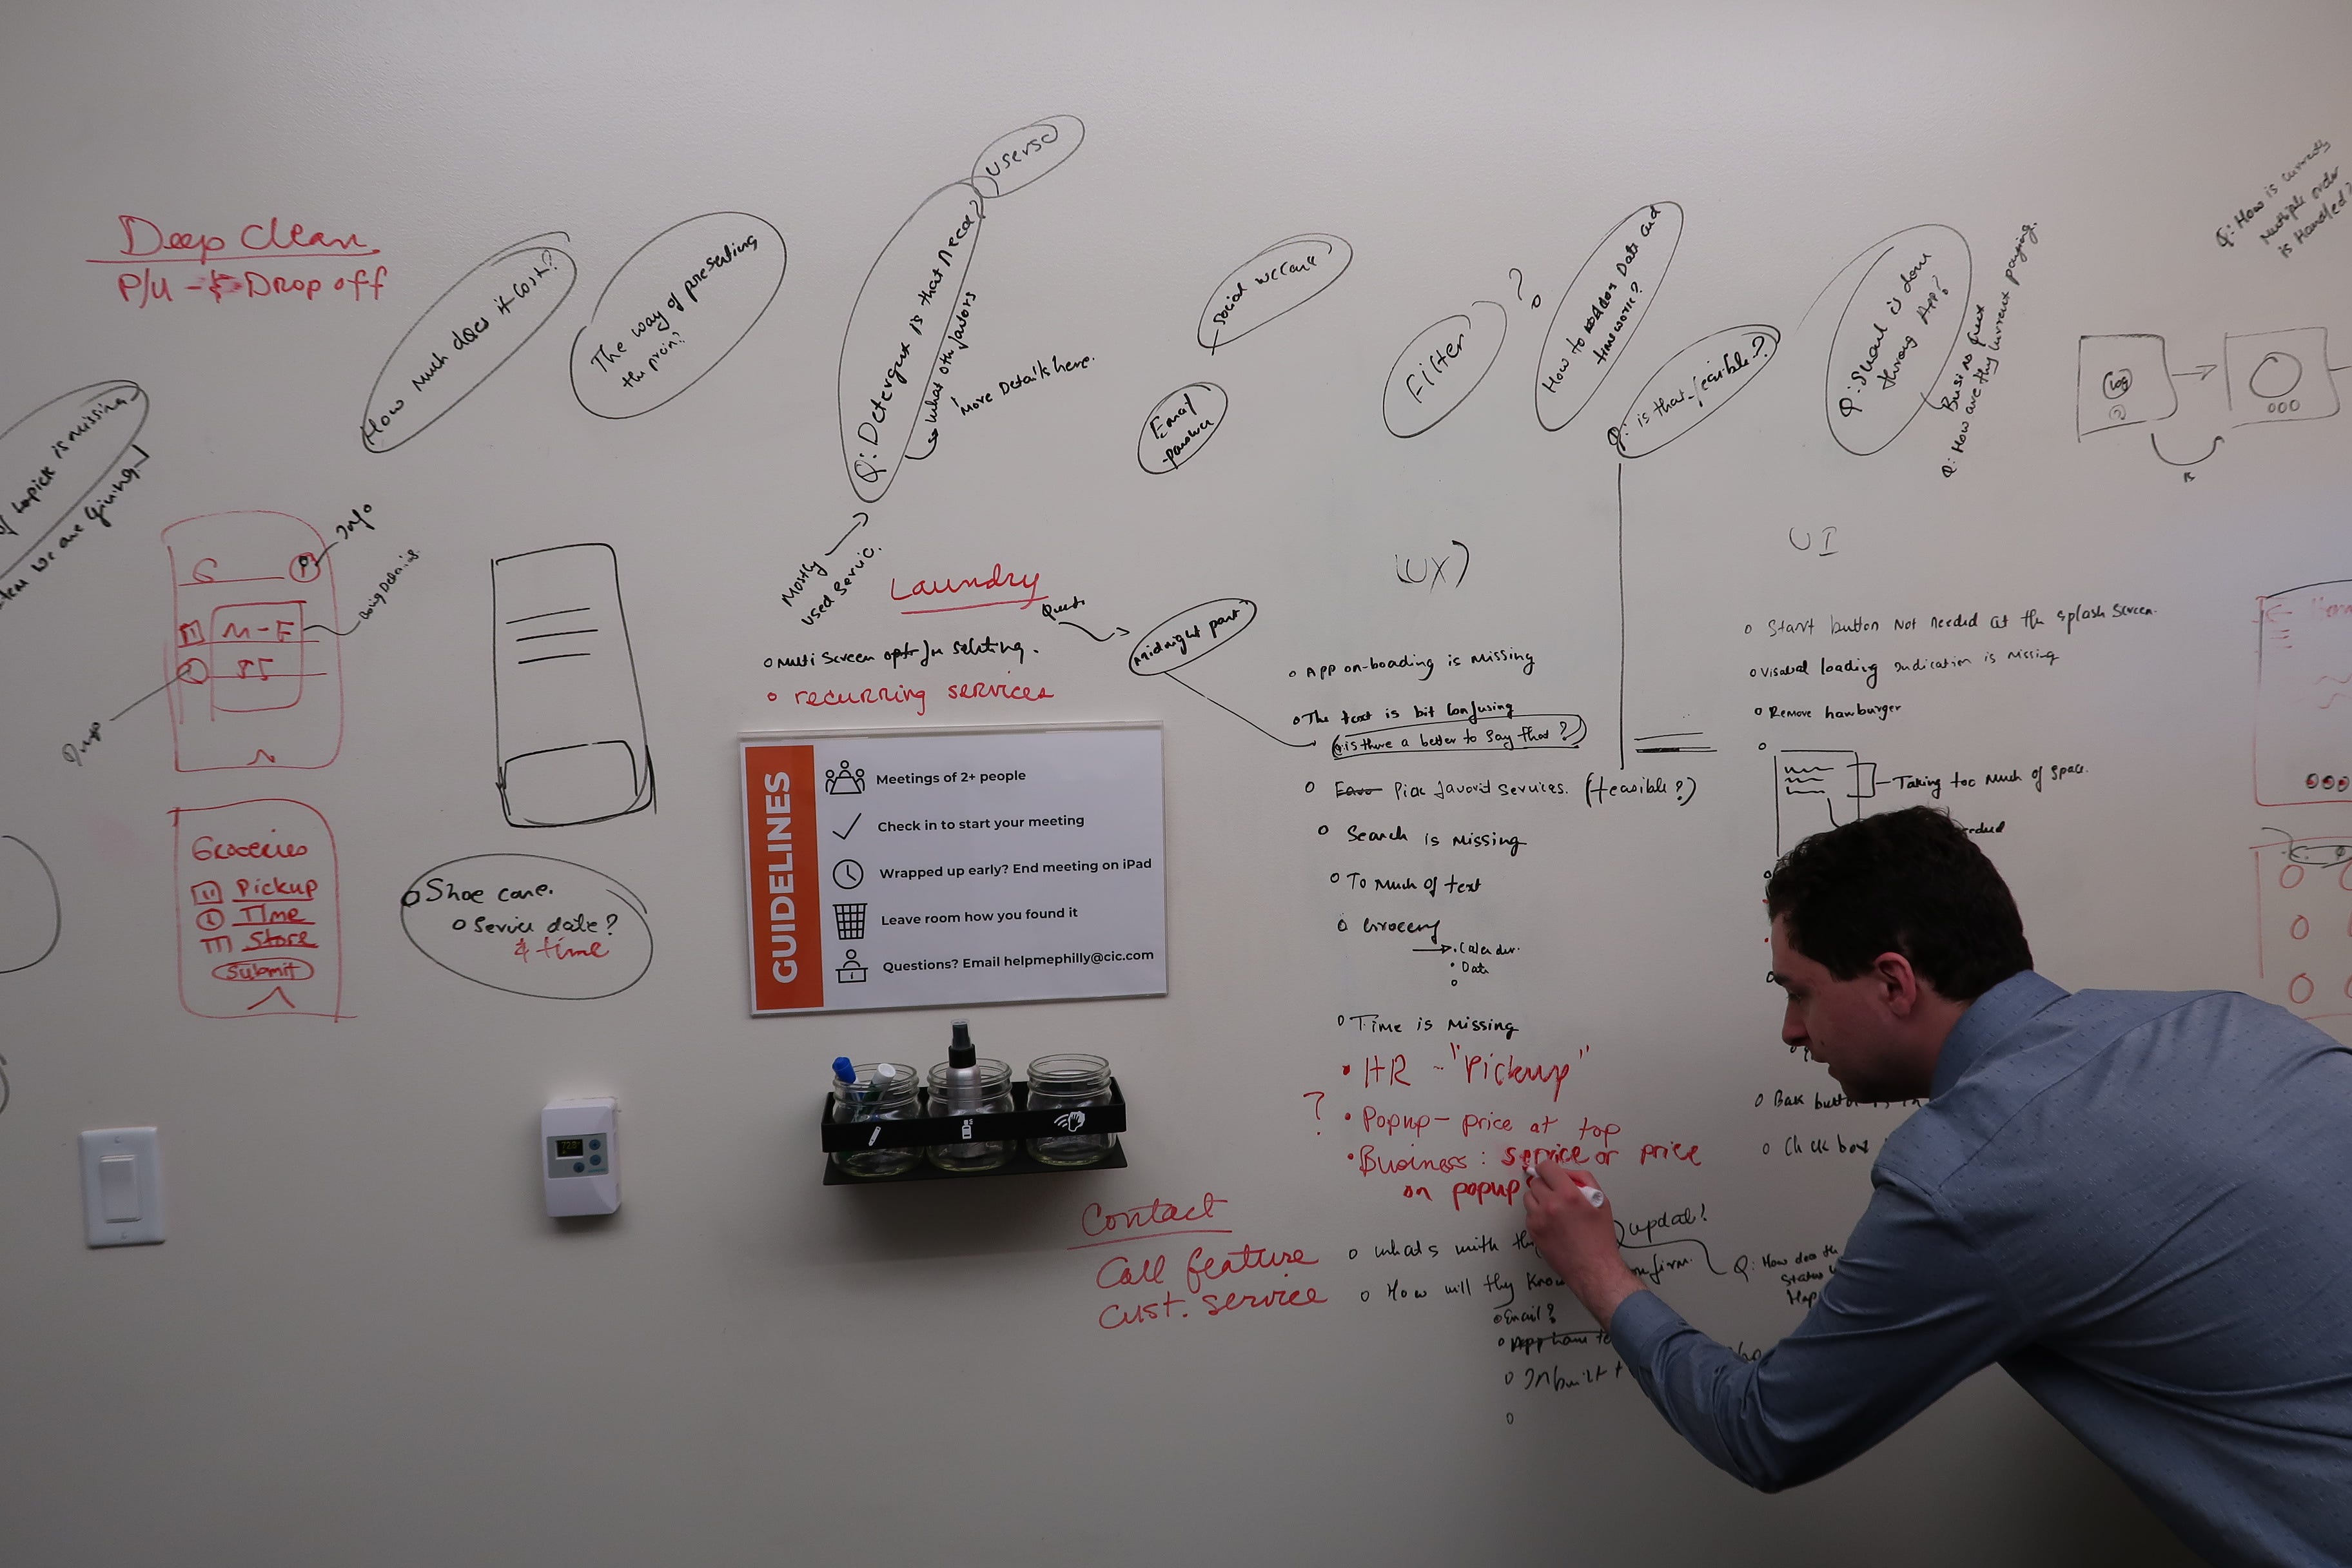 Deep Clean
P/U - & Drop off
is missing
we are giving
How much does it cost?
The way of presenting
the
userso
Q: Detergent is that need?
what oth favors
More Details here.
Mostly
used servic.
Social welcare
Email
Filter
?
How to address Date and
timework?
Q: is that feasible?
Q: Shoal is dow
throng App?
Q: How are they current paying.
Q: How is currently
Multiple order
is Handled?
Log
Info
M-F
Info
Groceries
Pickup
Time
Store
Submit
Shoe care.
Service date?
& time
Laundry
Multi screen
recurring services
Quest
midnight part
GUIDELINES
Meetings of 2+ people
Check in to start your meeting
Wrapped up early? End meeting on iPad
Leave room how you found it
Questions? Email helpmephilly@cic.com
UX
App on-boading is missing
The text is bit confusing
is there a better to say that?
Favo Pick favorit services. (feasible?)
Search is missing
To Much of text
Grocery
Calendar.
Date
Time is missing
HR - "Pickup"
? Popup - price at top
Business: service or price
on popup
Contact
Call feature
Cust. service
whats with th
updat!
How will thy know
onfirm.
Email?
App have to
Inbuilt t
Q: How does th
Status
UI
Start button not needed at the splash screen.
Visual loading indication is missing
Remove hamburger
Taking too much of space.
Back button is
Check box